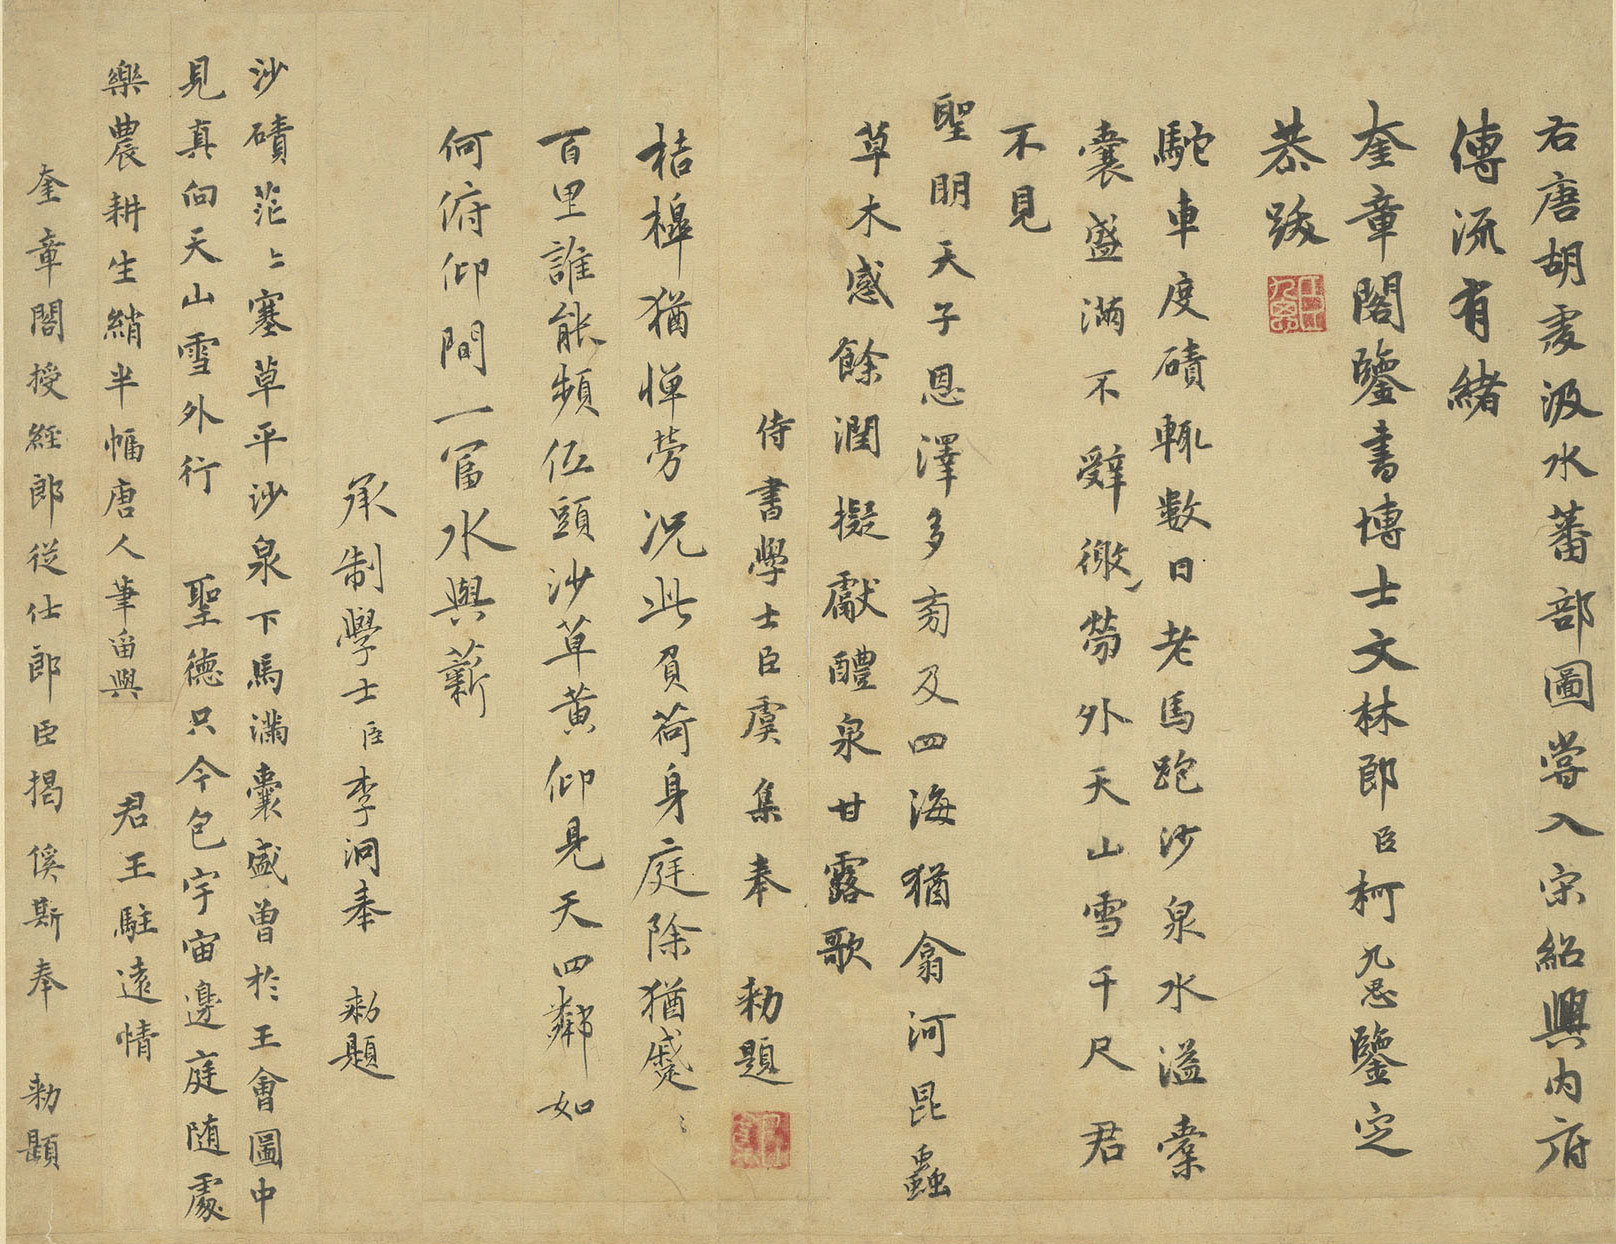 右唐胡虔汲水蕃部圖嘗入宋紹興內府
傳流有緒
奎章閣鑒書博士文林郎臣柯九思鑒定
恭跋
駝車度磧輒數日老馬跑沙泉水溢橐
囊盛滿不辭徼勞外天山雪千尺君
不見
聖明天子恩澤多旁及四海猶翕河昆蟲
草木感餘潤擬獻醴泉甘露歌
侍書學士臣虞集奉 勑題
桔槔猶惮勞況此負荷身庭除猶蹙〻
百里誰能頻低頭沙草黃仰見天四鄰如
何俯仰間一富水與薪
承制學士臣李泂奉 勑題
沙磧茫〻塞草平沙泉下馬滿囊盛曾於王會圖中
見真向天山雪外行 聖德只今包宇宙邊庭随處
樂農耕生綃半幅唐人筆留與 君王駐遠情
奎章閣授經郎從仕郎臣揭傒斯奉 勑題